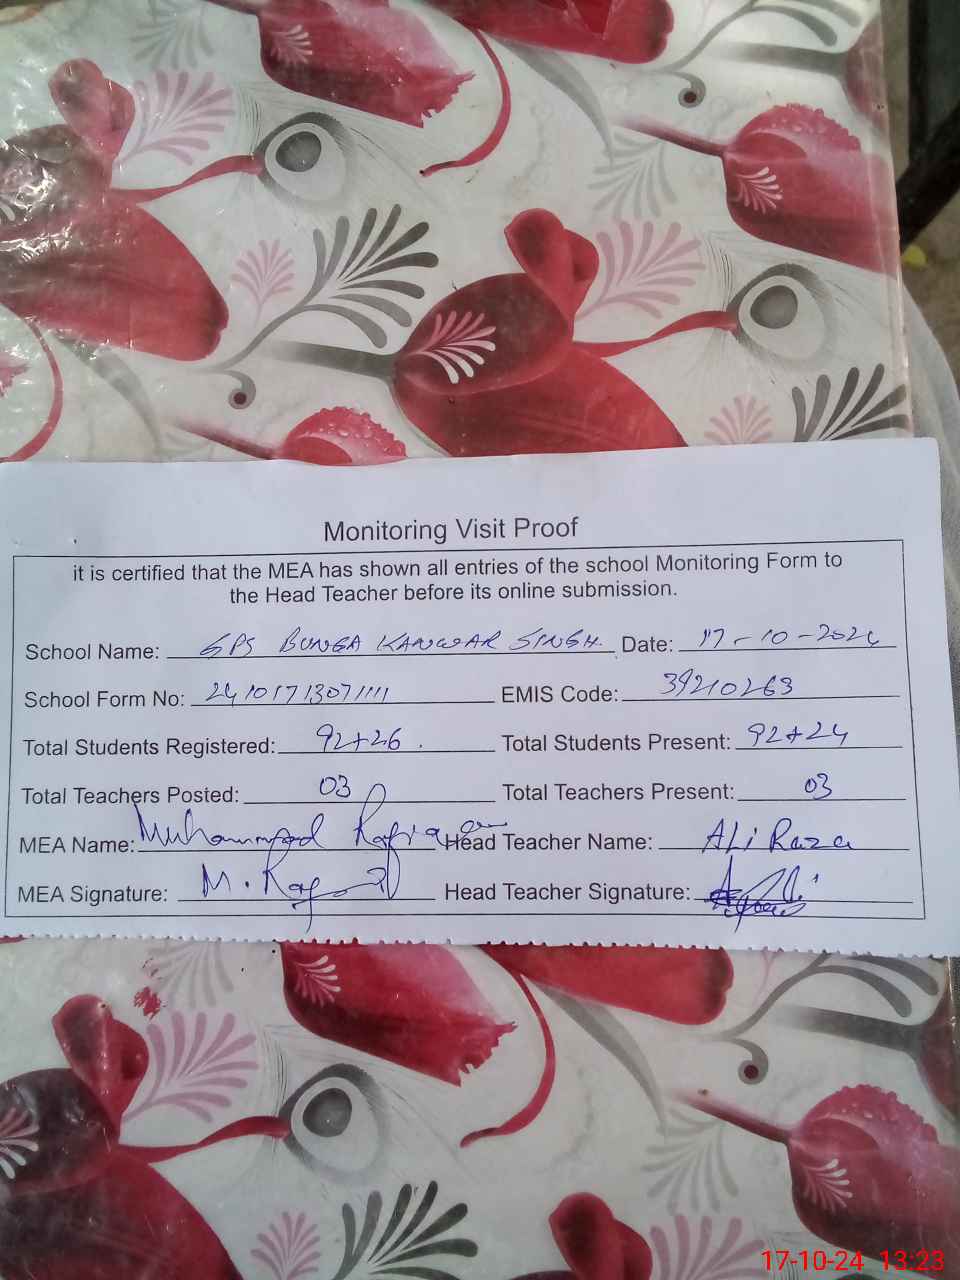 Monitoring Visit Proof
it is certified that the MEA has shown all entries of the school Monitoring Form to
the Head Teacher before its online submission.
School Name: GPS BUNGA KANWAR SINGH. Date: 17-10-2024
School Form No: 24101713071111 EMIS Code: 39210263
Total Students Registered: 92+26. Total Students Present: 92+24
Total Teachers Posted: 03 Total Teachers Present: 03
MEA Name: Muhammad Head Teacher Name: ALi Raza
MEA Signature: M. Head Teacher Signature:
17-10-24 13:23